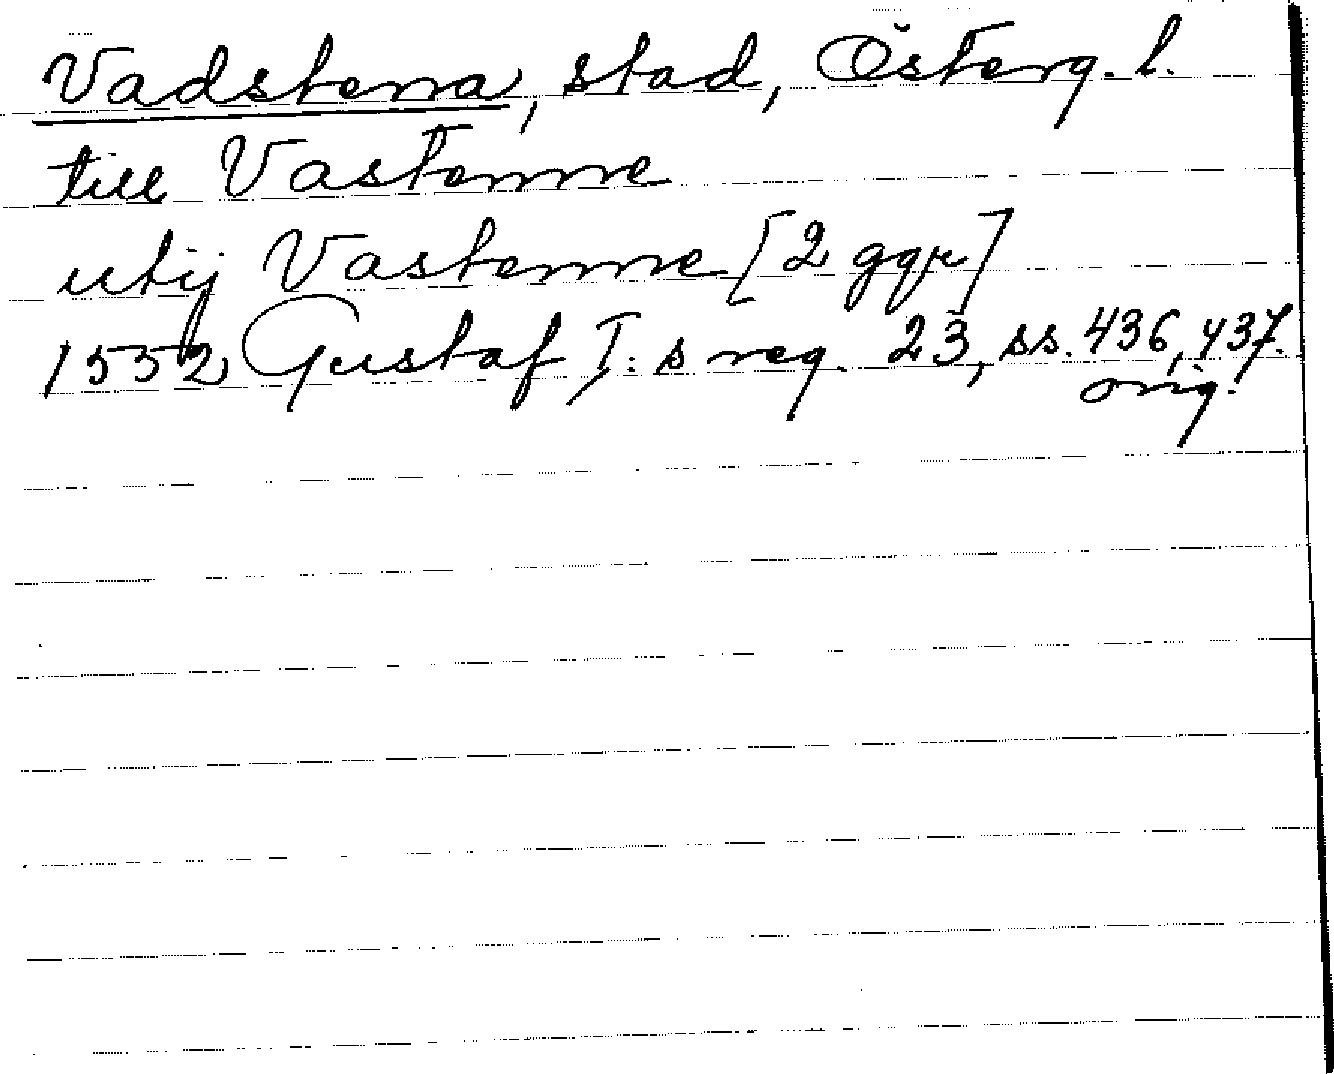 Vadstena, stad, Österg. l.
till Vastenne
utij Vastenne [2 ggr]
1552 Gustaf I:s reg. 23, ss. 436, 437.
orig.